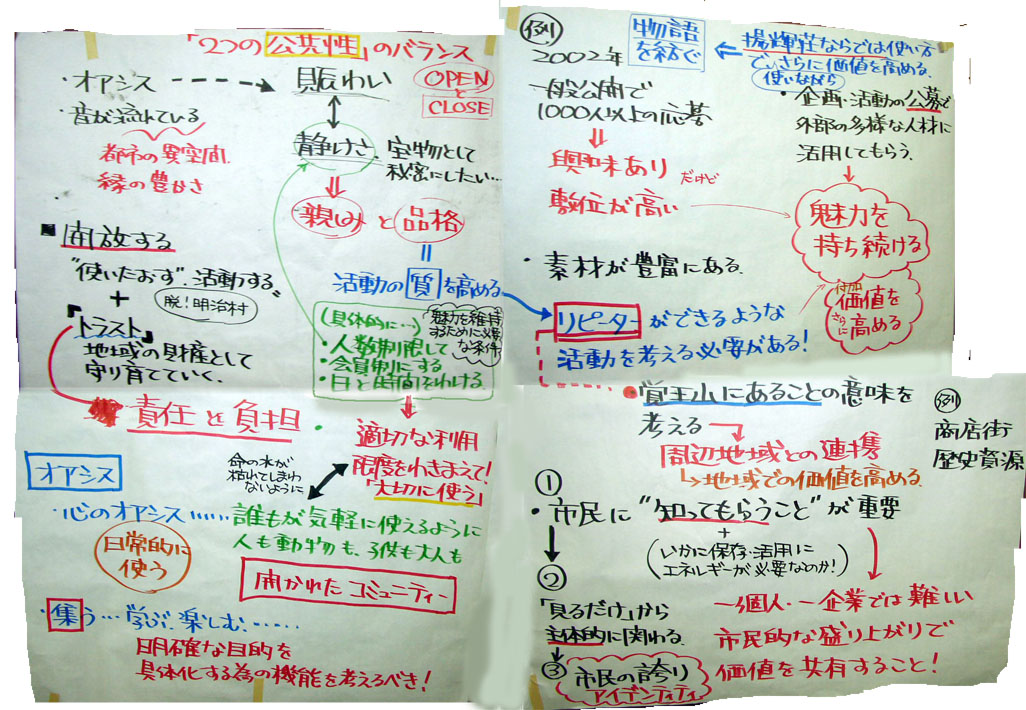 「2つの公共性」のバランス
・オアシス
賑わい
OPEN
と
CLOSE
・音が流れている
都市の異空間
緑の豊かさ
静けさ
宝物として
秘密にしたい…
親しみと品格
開放する
"使いたおす"活動する
+
脱!明治村
活動の質を高める
『トラスト』
地域の財産として
守り育てていく。
(具体的に…)
・人数制限して
・会員制にする
・日と時間をわける
魅力を維持
するために必要
な条件
責任と負担
適切な利用
限度をわきまえて!
「大切に使う」
オアシス
命の水が
枯れてしまわ
ないように
・心のオアシス……
誰もが気軽に使えるように
人も動物も、子供も大人も
日常的に
使う
開かれたコミュニティー
・集う…学ぶ、楽しむ、……
明確な目的を
具体化する為の機能を考えるべき!
例
物語
を紡ぐ
揚輝荘ならでは使い方
で、さらに価値を高める。
使いながら
2002年
一般公開で
1000人以上の応募
興味あり
だけど
敷位が高い
・企画・活動の公募で
外部の多様な人材に
活用してもらう。
魅力を
持ち続ける
付加
価値を
さらに
高める
・素材が豊富にある。
リピーターができるような
活動を考える必要がある!
・覚王山にあることの意味を
考える
周辺地域との連携
地域での価値を高める。
例
商店街
歴史資源
①
・市民に"知ってもらうこと"が重要
+
(いかに保存・活用に
エネルギーが必要なのか!)
②
「見るだけ」から
主体的に関わる。
一個人・一企業では難しい
市民的な盛り上がりで
価値を共有すること!
③
市民の誇り
アイデンティティ